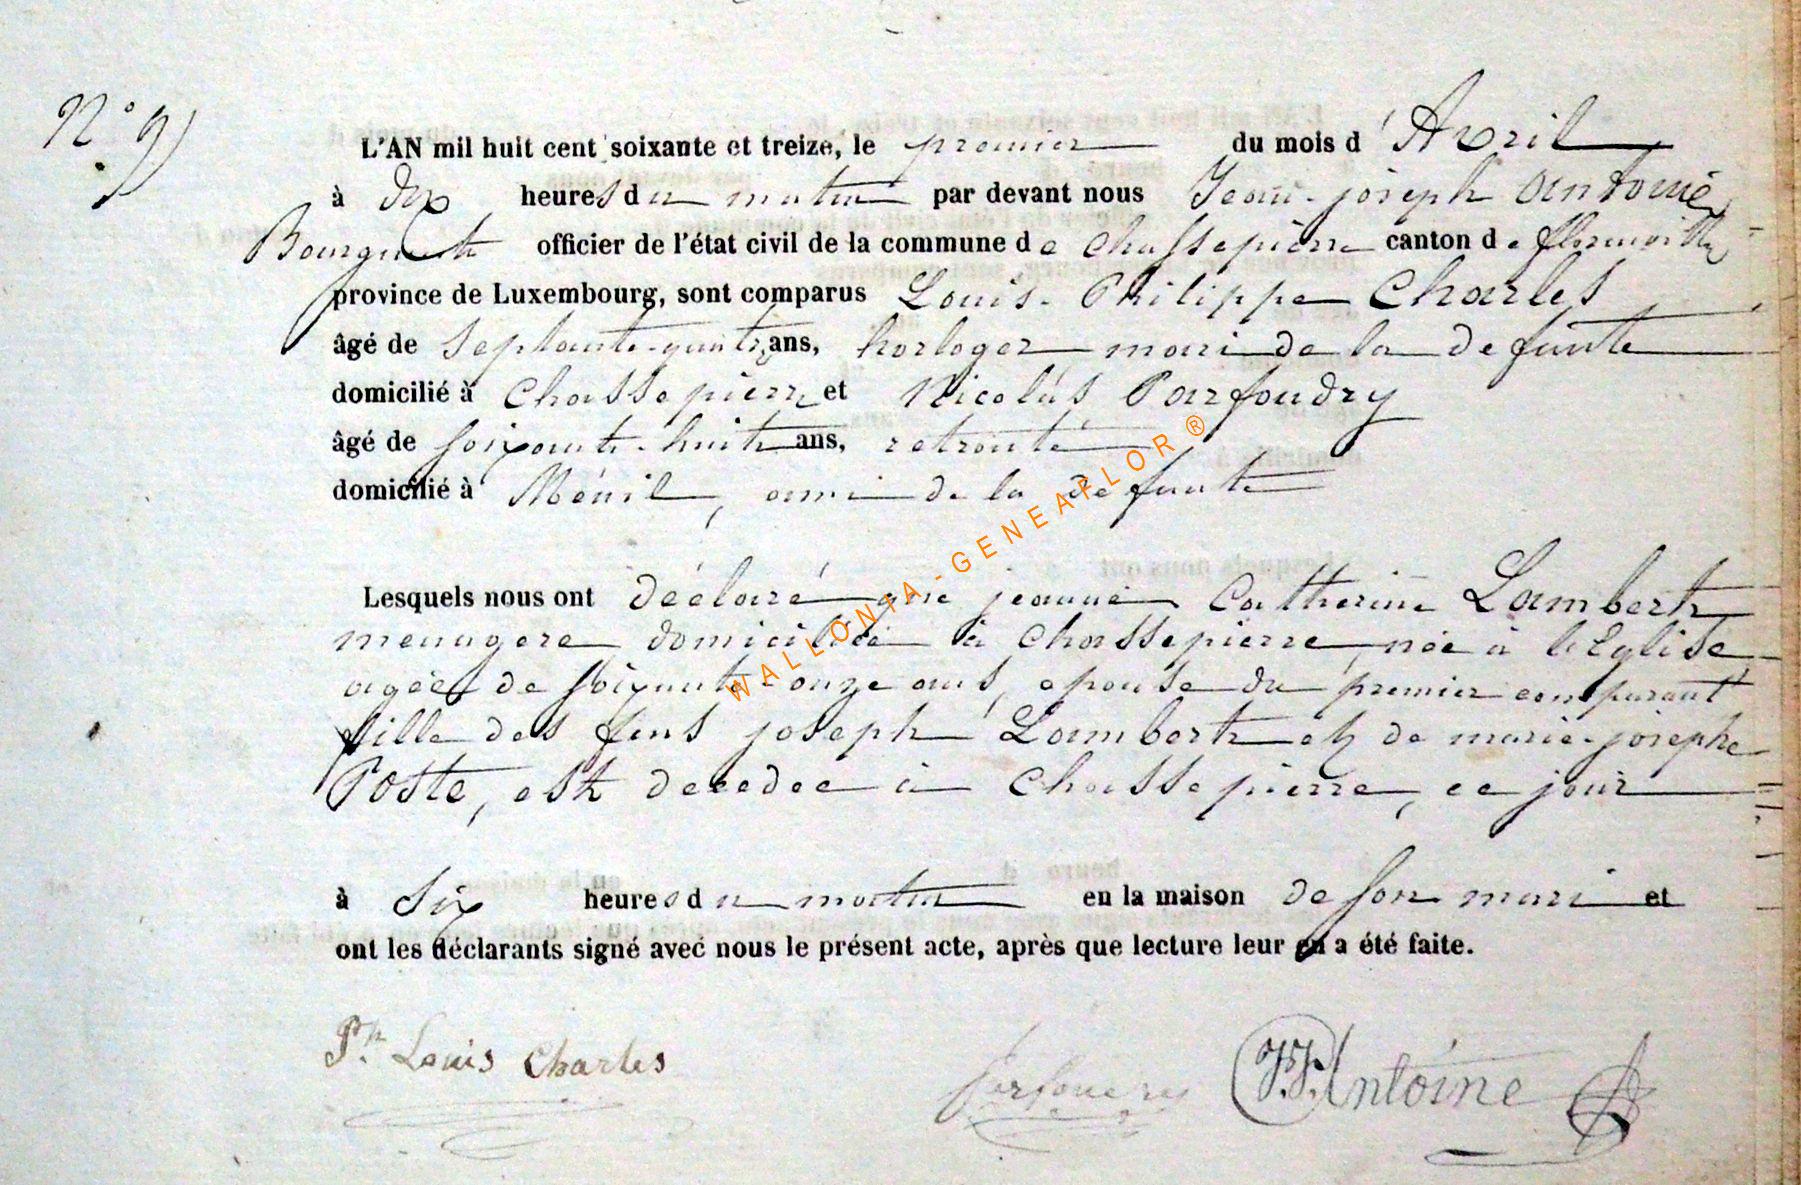 N° 9)
L'AN mil huit cent soixante et treize, le premier du mois d'Avril
à dix heures du matin par devant nous Jean-joseph Antoine
officier de l'état civil de la commune de Chassepierre canton de florenville
province de Luxembourg, sont comparus Louis-Philippe Charles
âgé de septante-quatre ans, horloger mari de la defunte
domicilié à Chassepierre et Nicolas Parfoudry
âgé de soixante-huit ans, retraité
domicilié à Ménil, ami de la defunte
Lesquels nous ont déclaré que jeanne Catherine Lambert
menagere domiciliée à Chassepierre, née à l'Eglise
agée de soixante-onze ans, epouse du premier comparant
fille des feus joseph Lambert et de marie-josephe
Poste, est decedee à Chassepierre, ce jour
à six heures du matin en la maison de son mari et
ont les déclarants signé avec nous le présent acte, après que lecture leur en a été faite.
Ph Louis Charles
Parfoudry
J.J. Antoine
WALLONIA-GENEAFLOR®